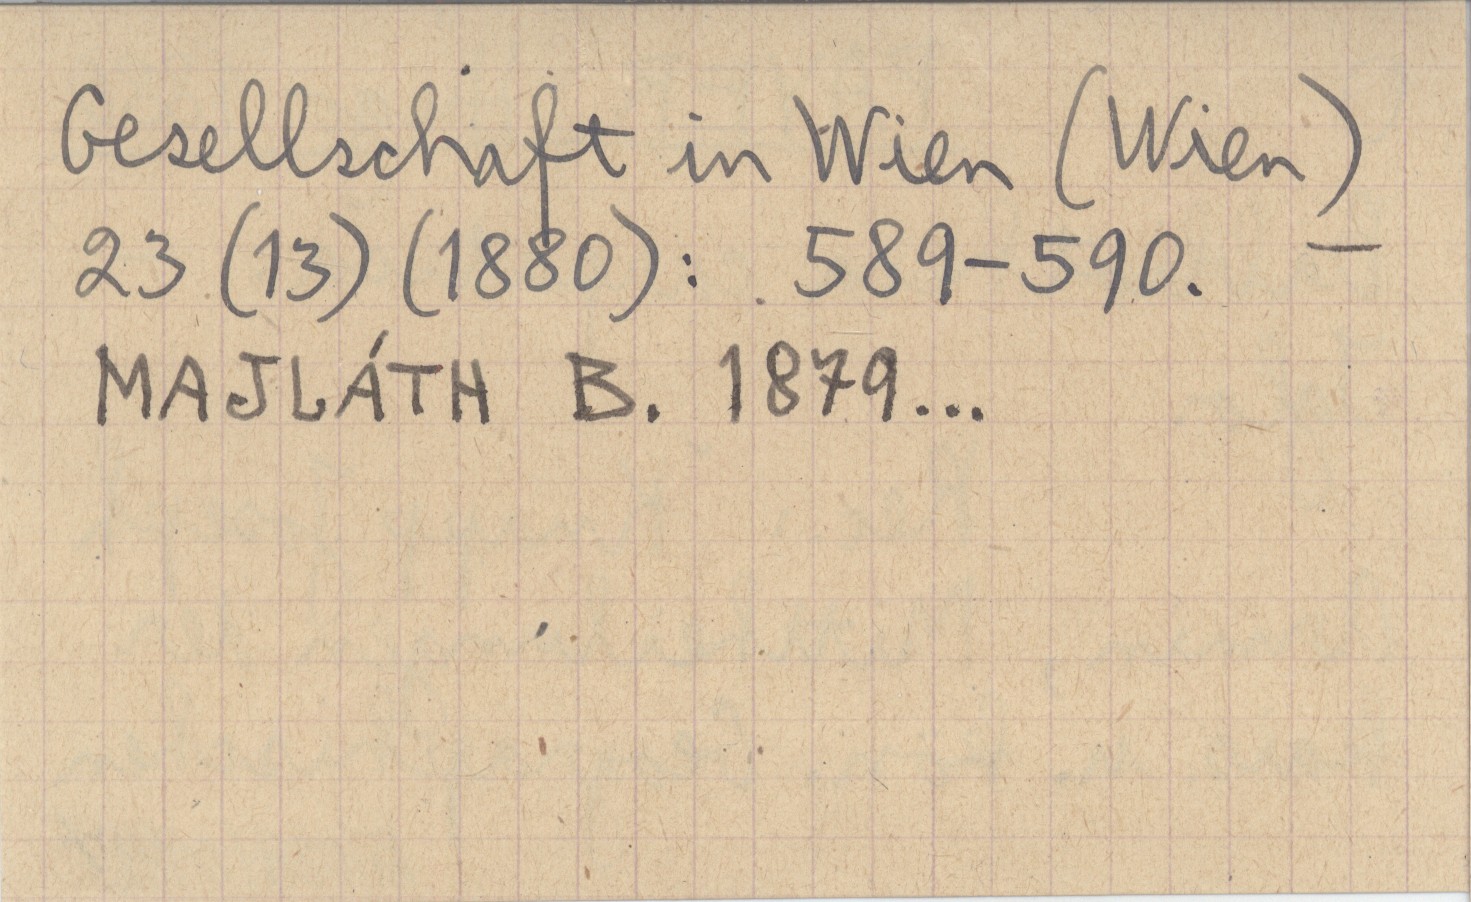 Gesellschaft in Wien (Wien)
23 (13) (1880): 589-590. —
MAJLÁTH B. 1879...